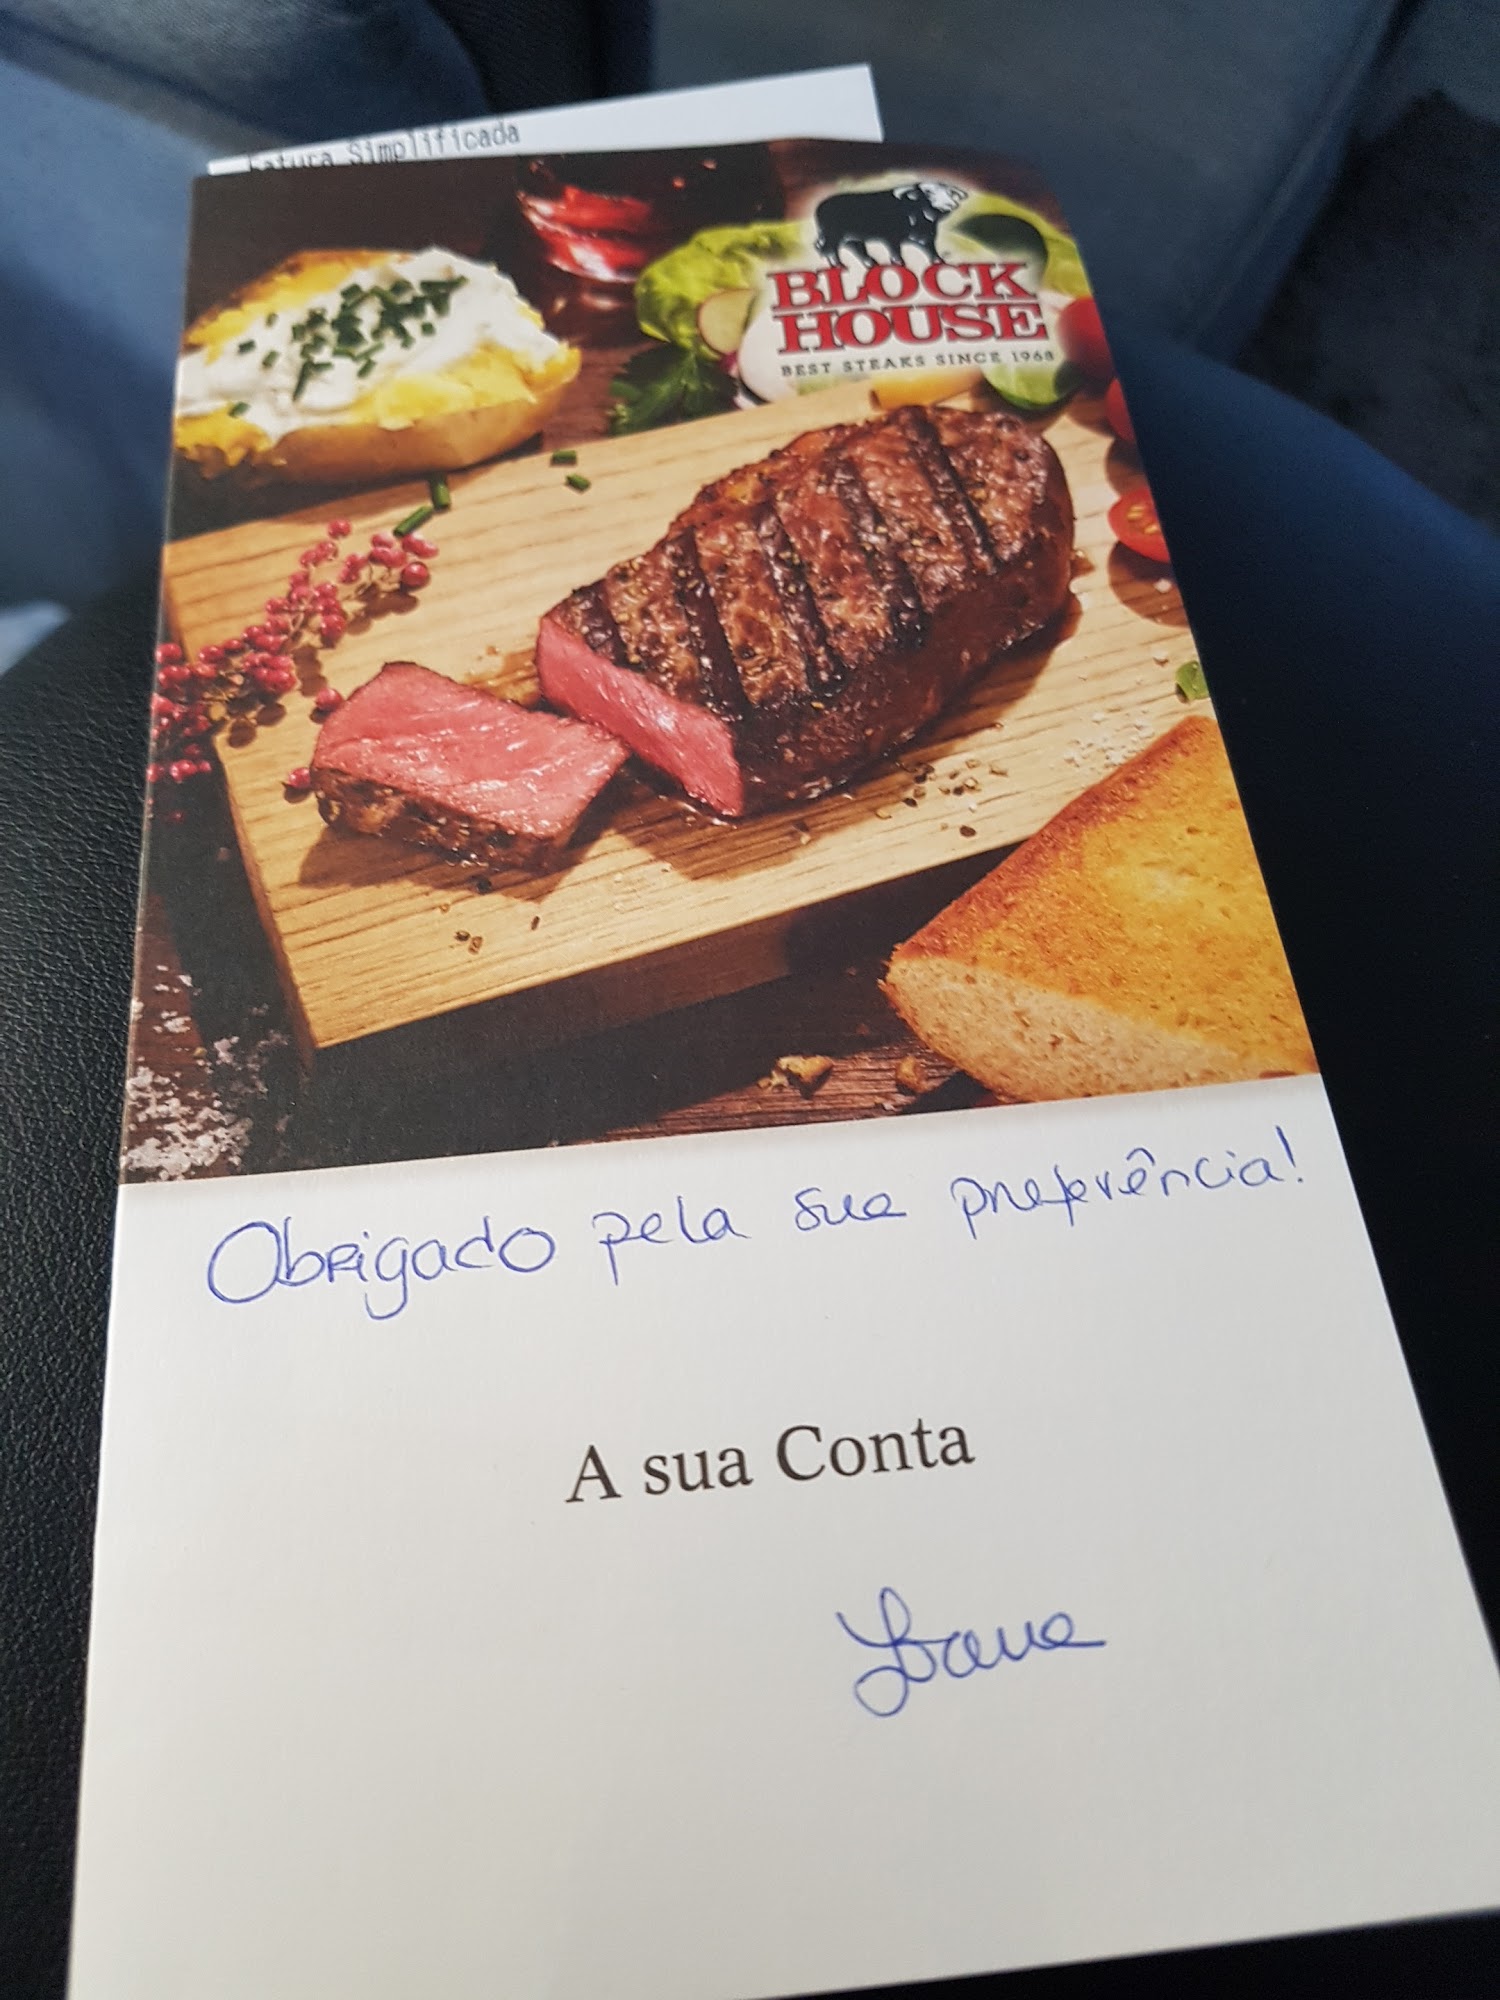 Fatura Simplificada
BLOCK
HOUSE
BEST STEAKS SINCE 1968
Obrigado pela sua preferência!
A sua Conta